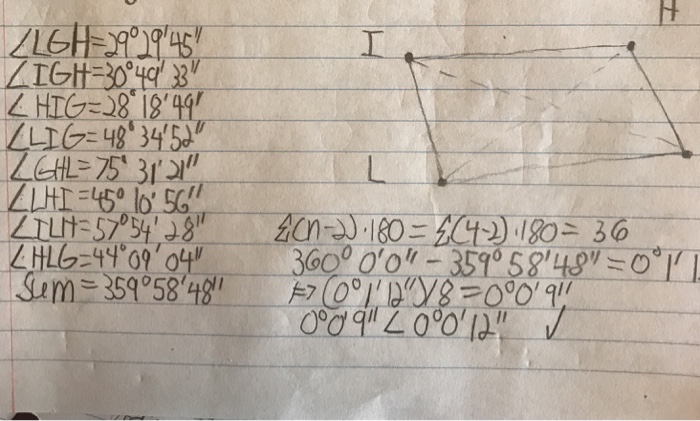 H
I
∠LGH=29°29'45"
∠IGH=30°49'33"
∠HIG=28°18'49"
∠LIG=48°34'52"
∠GHL=75°31'21"
L
∠LHI=45°10'56"
∠ILH=57°54'28"
Σ(n-2)·180=Σ(4-2)·180=36
∠HLG=44°09'04"
360°0'0"-359°58'48"=0°1'1
Sum=359°58'48"
↦(0°1'12")/8=0°0'9"
0°0'9"<0°0'12" ✓